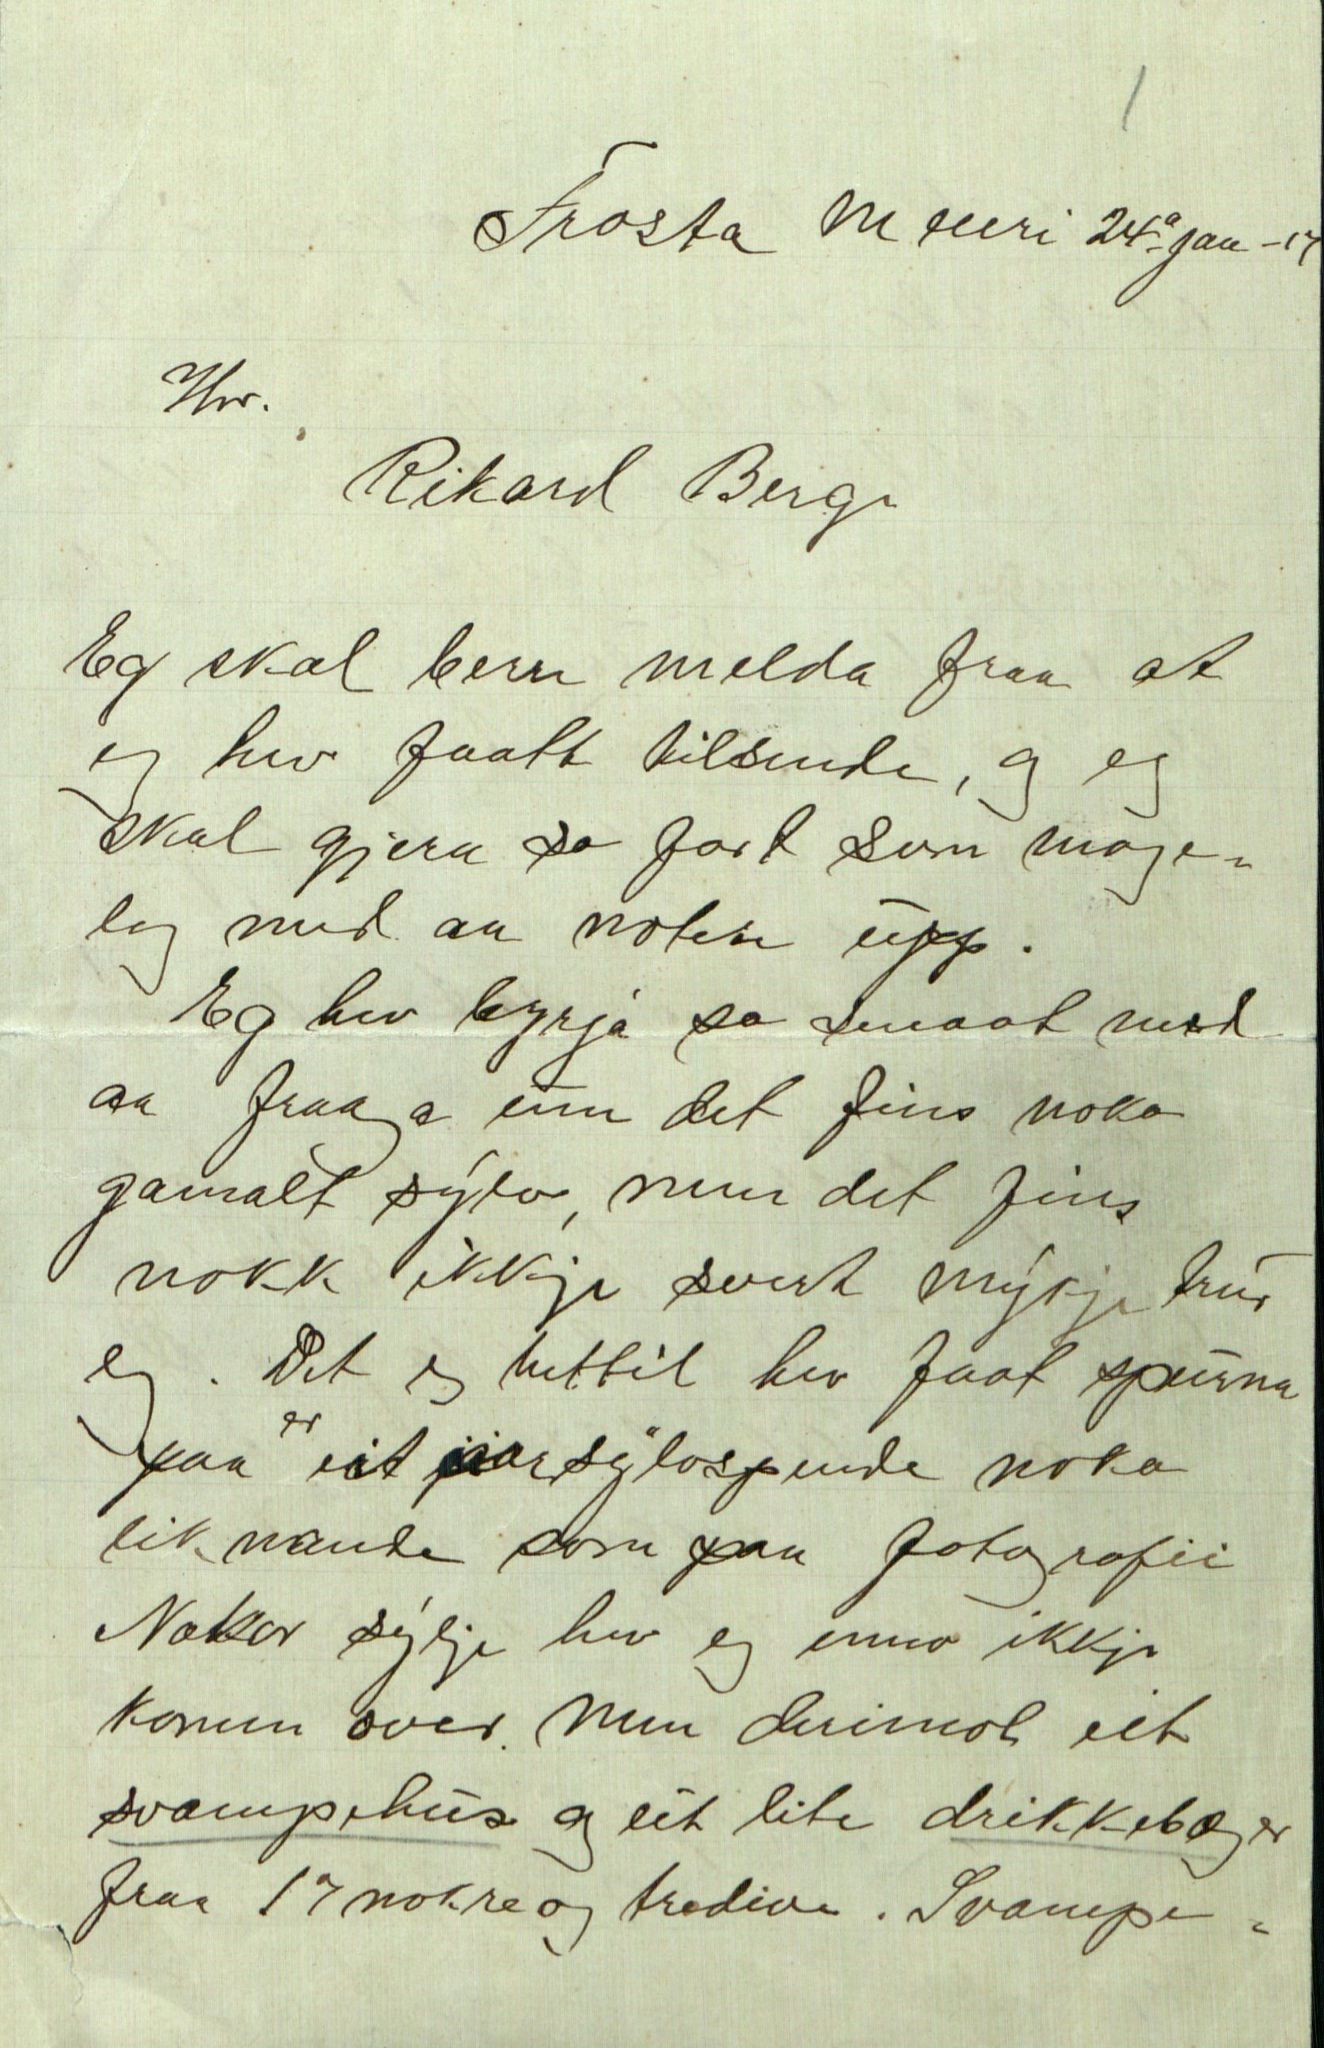 1
Frosta M 24a jan - 17
Hr.
Rikard Berge
Eg skal berre melda fraa at
eg hev faatt tilsende, og eg
skal gjera so fort som moge-
leg med aa notere upp.
Eg hev byrja so smaat med
aa fraaga um det fins noko
gamalt sylv, men det fins
nokk ikkje svert mykje trur
eg. Det eg hettil hev faat spurna
paa er eit par sylvspende noko
liknande som paa fotografii
Nokor sylje hev eg enno ikkje
komen over. Men derimot eit
svampehus og eit lite drikkebæger
fraa 17 nokre og tredive. Svampe-